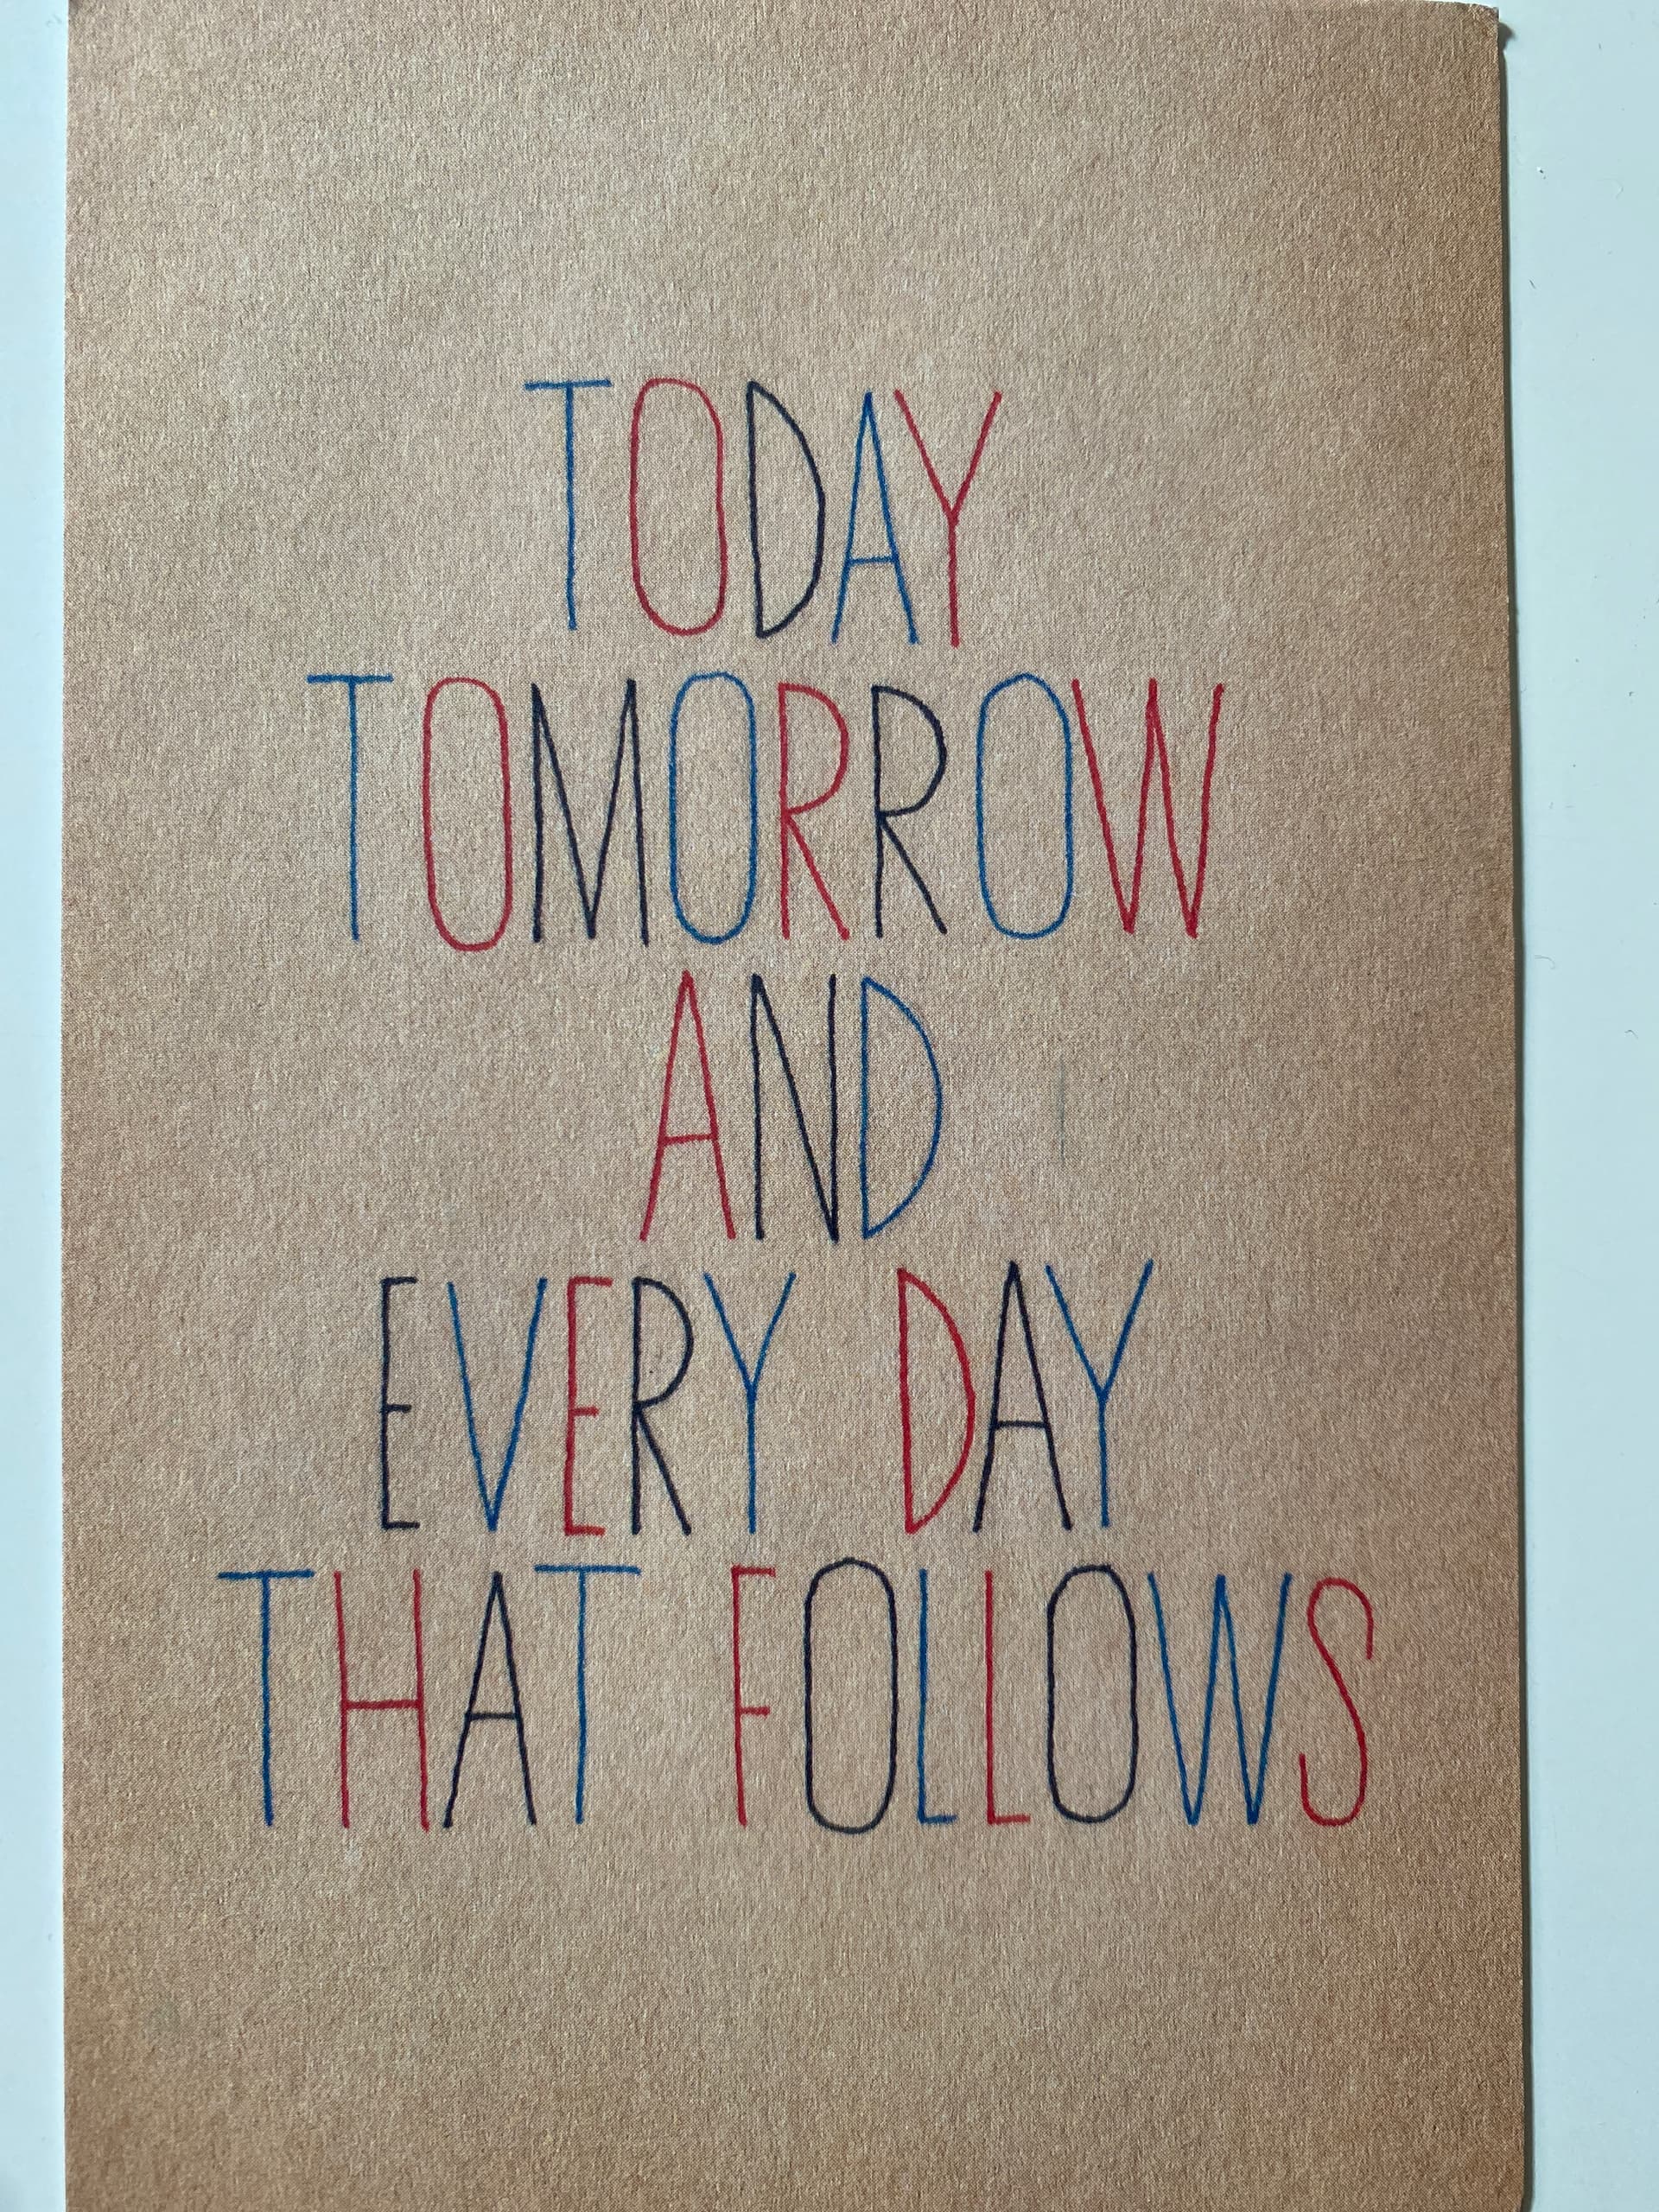 TODAY
TOMORROW
AND
EVERY DAY
THAT FOLLOWS